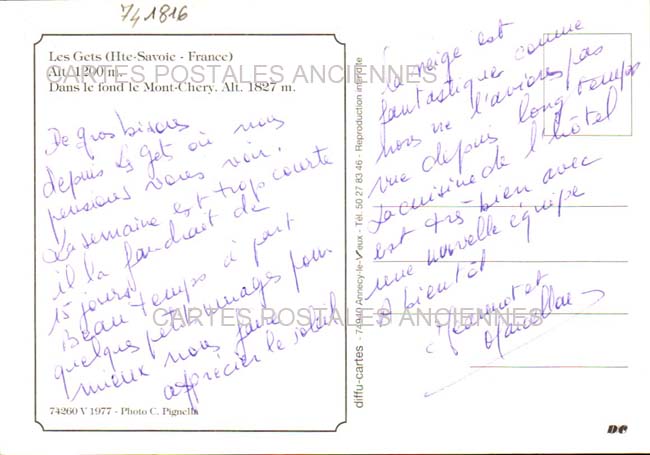 741816
Les Gets (Hte-Savoie - France)
Alt. 1200 m.
Dans le fond le Mont-Chery. Alt. 1827 m.
CARTES POSTALES ANCIENNES
De gros bisous
depuis Les Gets où nous
pensions vous voir.
La semaine est trop courte
il la faudrait de
15 jours
Beau temps à part
quelques petits nuages pour
mieux nous faire
apprécier le soleil
CARTES POSTALES ANCIENNES
74260 V 1977 - Photo C. Pignella
diffu-cartes - 74940 Annecy-le-Vieux - Tél. 50 27 83 46 - Reproduction interdite
La neige est
fantastique comme
nous ne l'avions pas
vue depuis longtemps
La cuisine de l'hôtel
est très bien avec
une nouvelle équipe
A bientôt
Jeannot et
DC